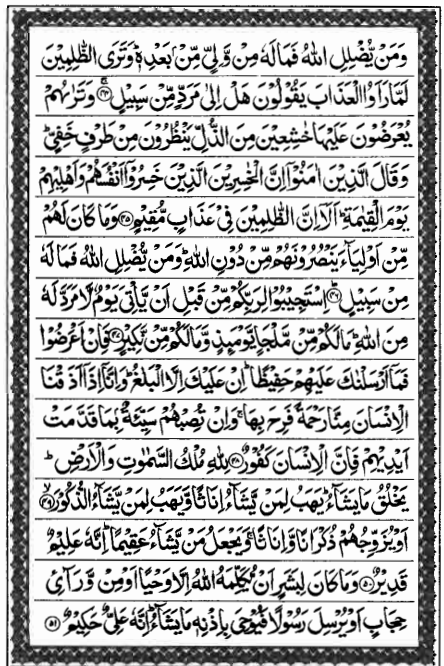 وَمَنْ يُّضْلِلِ اللّٰهُ فَمَا لَهٗ مِنْ وَّلِيٍّ مِّنْۢ بَعْدِهٖ ؕ وَتَرَى الظّٰلِمِيْنَ
لَمَّا رَاَوُا الْعَذَابَ يَقُوْلُوْنَ هَلْ اِلٰى مَرَدٍّ مِّنْ سَبِيْلٍ ۚ﴿۴۴﴾ وَتَرٰىهُمْ
يُعْرَضُوْنَ عَلَيْهَا خٰشِعِيْنَ مِنَ الذُّلِّ يَنْظُرُوْنَ مِنْ طَرْفٍ خَفِيٍّ ؕ
وَقَالَ الَّذِيْنَ اٰمَنُوْۤا اِنَّ الْخٰسِرِيْنَ الَّذِيْنَ خَسِرُوْۤا اَنْفُسَهُمْ وَاَهْلِيْهِمْ
يَوْمَ الْقِيٰمَةِ ؕ اَلَاۤ اِنَّ الظّٰلِمِيْنَ فِيْ عَذَابٍ مُّقِيْمٍ ﴿۴۵﴾ وَمَا كَانَ لَهُمْ
مِّنْ اَوْلِيَآءَ يَنْصُرُوْنَهُمْ مِّنْ دُوْنِ اللّٰهِ ؕ وَمَنْ يُّضْلِلِ اللّٰهُ فَمَا لَهٗ
مِنْ سَبِيْلٍ ؕ﴿۴۶﴾ اِسْتَجِيْبُوْا لِرَبِّكُمْ مِّنْ قَبْلِ اَنْ يَّاْتِيَ يَوْمٌ لَّا مَرَدَّ لَهٗ
مِنَ اللّٰهِ ؕ مَا لَكُمْ مِّنْ مَّلْجَاٍ يَّوْمَئِذٍ وَّمَا لَكُمْ مِّنْ نَّكِيْرٍ ﴿۴۷﴾ فَاِنْ اَعْرَضُوْا
فَمَاۤ اَرْسَلْنٰكَ عَلَيْهِمْ حَفِيْظًا ؕ اِنْ عَلَيْكَ اِلَّا الْبَلٰغُ ؕ وَاِنَّاۤ اِذَاۤ اَذَقْنَا
الْاِنْسَانَ مِنَّا رَحْمَةً فَرِحَ بِهَا ۚ وَاِنْ تُصِبْهُمْ سَيِّئَةٌۢ بِمَا قَدَّمَتْ
اَيْدِيْهِمْ فَاِنَّ الْاِنْسَانَ كَفُوْرٌ ﴿۴۸﴾ لِلّٰهِ مُلْكُ السَّمٰوٰتِ وَالْاَرْضِ ؕ
يَخْلُقُ مَا يَشَآءُ ؕ يَهَبُ لِمَنْ يَّشَآءُ اِنَاثًا وَّيَهَبُ لِمَنْ يَّشَآءُ الذُّكُوْرَ ۙ﴿۴۹﴾
اَوْ يُزَوِّجُهُمْ ذُكْرَانًا وَّاِنَاثًا ۚ وَيَجْعَلُ مَنْ يَّشَآءُ عَقِيْمًا ؕ اِنَّهٗ عَلِيْمٌ
قَدِيْرٌ ﴿۵۰﴾ وَمَا كَانَ لِبَشَرٍ اَنْ يُّكَلِّمَهُ اللّٰهُ اِلَّا وَحْيًا اَوْ مِنْ وَّرَآئِ
حِجَابٍ اَوْ يُرْسِلَ رَسُوْلًا فَيُوْحِيَ بِاِذْنِهٖ مَا يَشَآءُ ؕ اِنَّهٗ عَلِيٌّ حَكِيْمٌ ﴿۵۱﴾